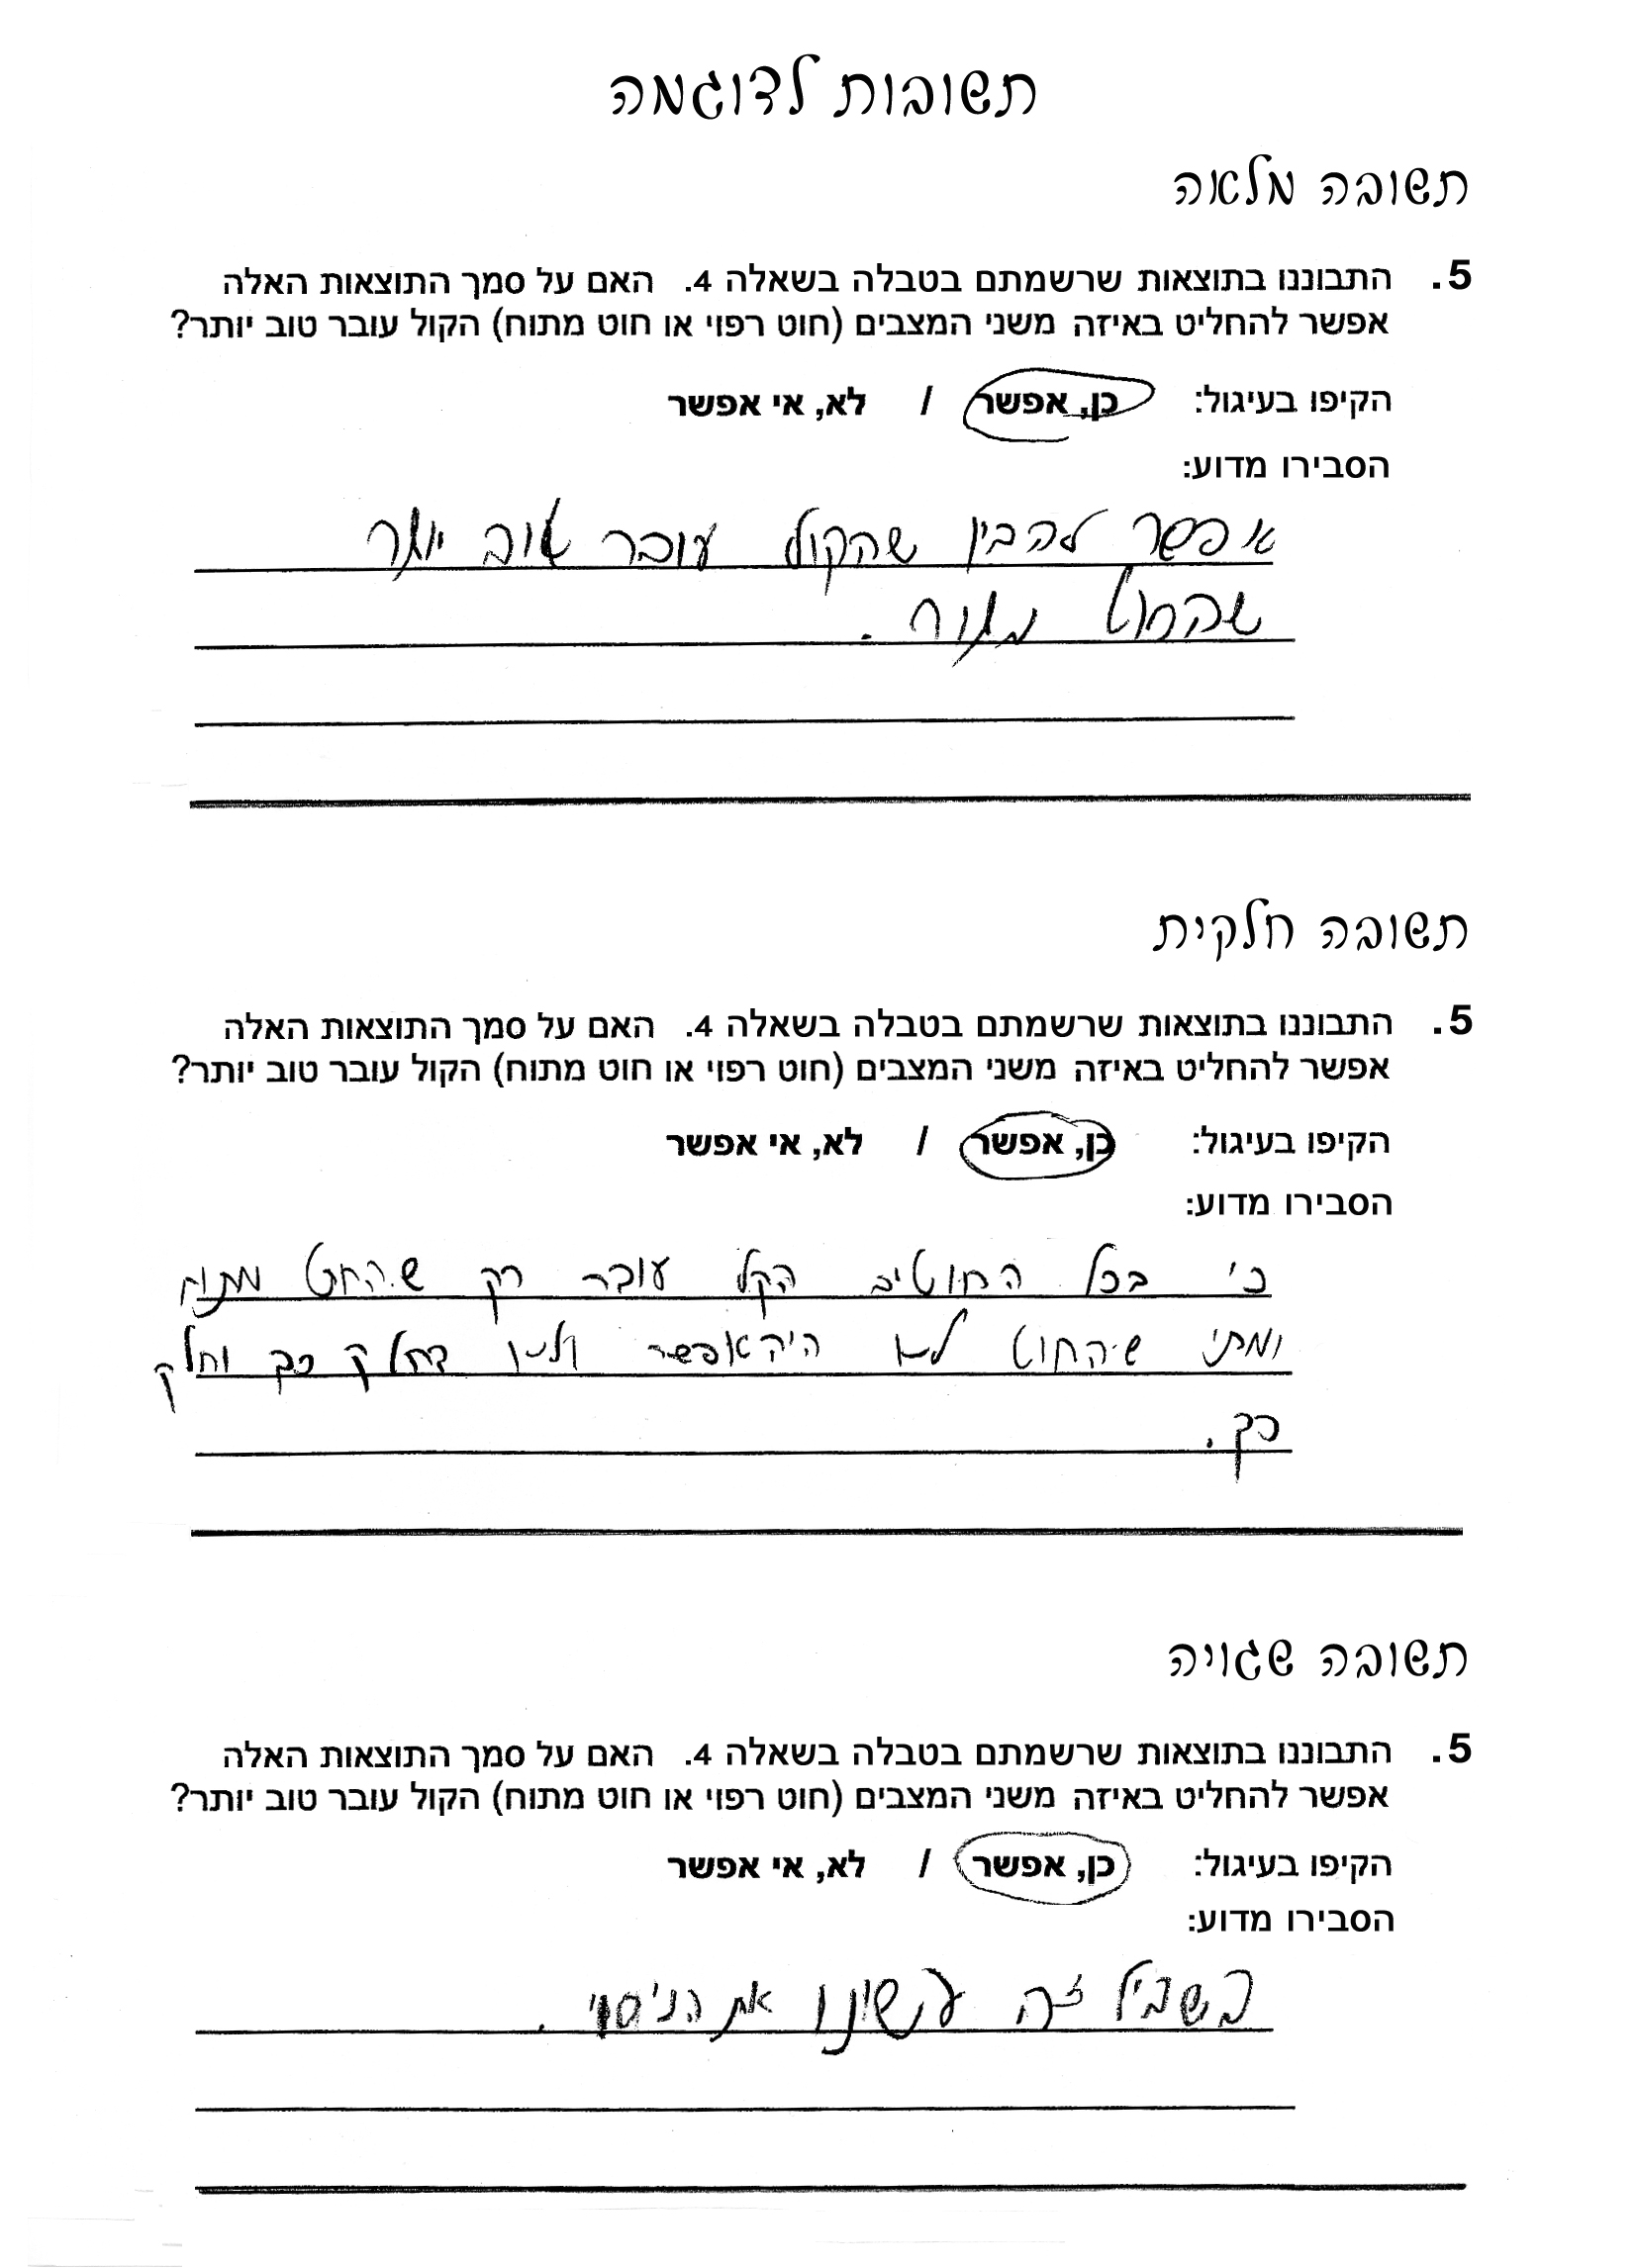 תשובות לדוגמה
תשובה מלאה
5. התבוננו בתוצאות שרשמתם בטבלה בשאלה 4. האם על סמך התוצאות האלה
אפשר להחליט באיזה משני המצבים (חוט רפוי או חוט מתוח) הקול עובר טוב יותר?
הקיפו בעיגול: כן, אפשר / לא, אי אפשר
הסבירו מדוע:
אפשר להבין שהקול עובר טוב יותר
שהחוט מתוח.
תשובה חלקית
5. התבוננו בתוצאות שרשמתם בטבלה בשאלה 4. האם על סמך התוצאות האלה
אפשר להחליט באיזה משני המצבים (חוט רפוי או חוט מתוח) הקול עובר טוב יותר?
הקיפו בעיגול: כן, אפשר / לא, אי אפשר
הסבירו מדוע:
כי בכל החוטים הקל עובר רק שהחט מתוח
ומתי שהחוט לא היה אפשר כך וחלק
כך.
תשובה שגויה
5. התבוננו בתוצאות שרשמתם בטבלה בשאלה 4. האם על סמך התוצאות האלה
אפשר להחליט באיזה משני המצבים (חוט רפוי או חוט מתוח) הקול עובר טוב יותר?
הקיפו בעיגול: כן, אפשר / לא, אי אפשר
הסבירו מדוע:
בשביל זה עשינו את הניסוי.